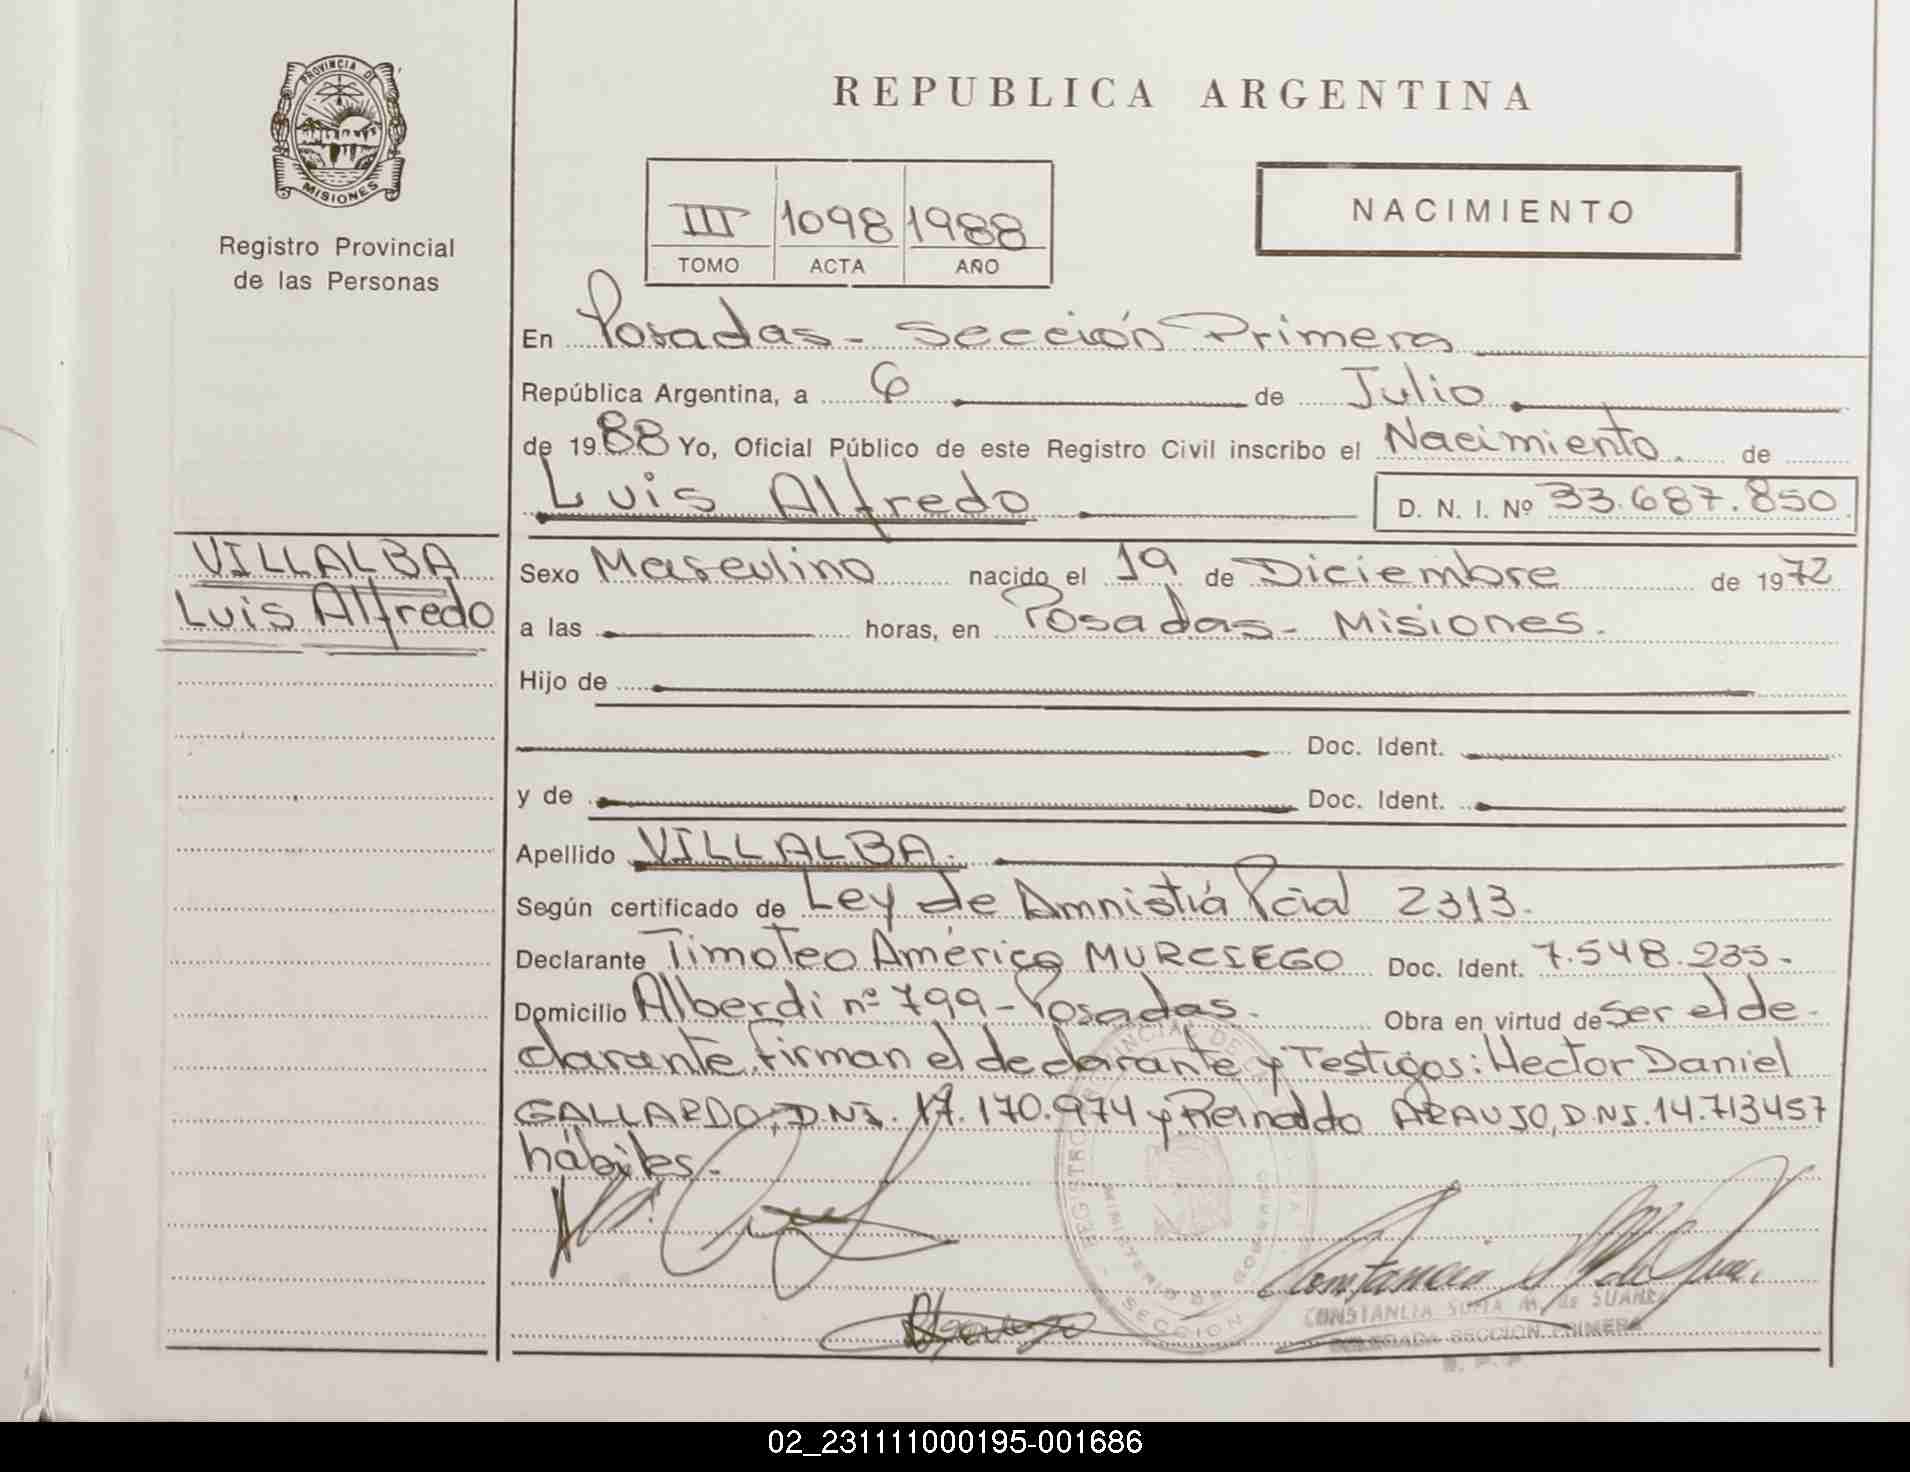 PROVINCIA DE
MISIONES
Registro Provincial
de las Personas
REPUBLICA ARGENTINA
III 1098 1988
TOMO ACTA AÑO
NACIMIENTO
En Posadas - Sección Primera
República Argentina, a 6 de Julio
de 1988 Yo, Oficial Público de este Registro Civil inscribo el Nacimiento. de
Luis Alfredo D. N. I. Nº 33.687.850
VILLALBA
Luis Alfredo
Sexo Masculino nacido el 19 de Diciembre de 1972
a las horas, en Posadas - Misiones.
Hijo de
Doc. Ident.
y de Doc. Ident.
Apellido VILLALBA.
Según certificado de Ley de Amnistiá Pcial 2313.
Declarante Timoteo Américo MURCIEGO Doc. Ident. 7.548.235.
Domicilio Alberdi nº 799 - Posadas. Obra en virtud de ser el de-
clarante. Firman el declarante y Testigos: Hector Daniel
GALLARDO, D.N.I. 17.170.974 y Reinaldo ARAUJO, D.N.I. 14.713457
hábiles.
REGISTRO PROVINCIAL DE
MINISTERIO DE GOBIERNO
SECCION
CONSTANCIA SUSTA M. de SUAREZ
DELEGADA SECCION PRIMERA
02_231111000195-001686